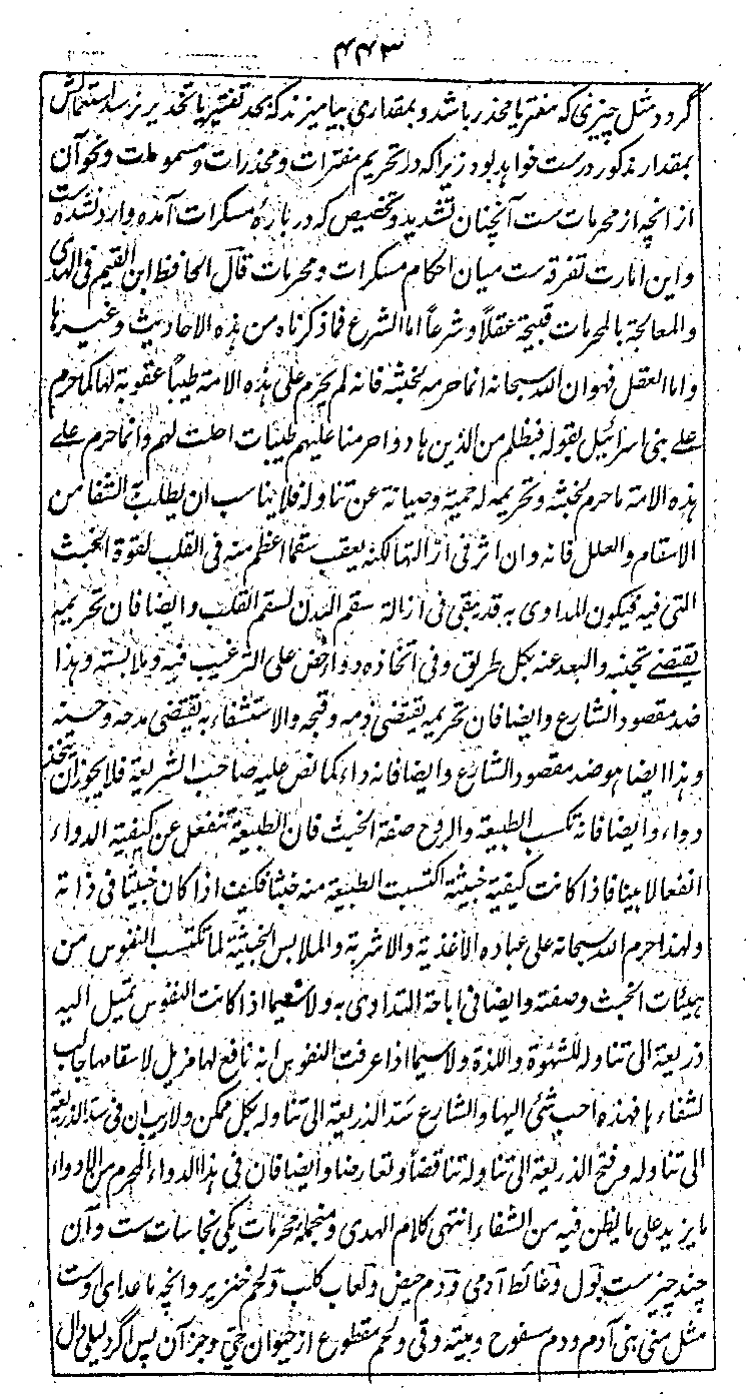 ۴۴۳
گردد مثل چیزی که مفتر یا مخدر باشد و بمقداری بیامیزند که بحد تفتیر یا تخدیر نرسد استعمالش
بمقدار مذکور درست خواهد بود زیراکه در تحریم مفترات و مخدرات و مسمومات و نحو آن
از انچه از محرمات ست آنچنان تشدید و تخصیص که دربارهٔ مسکرات آمده وارد نشده ست
و این امارت تفرقه ست میان احکام مسکرات و محرمات قال الحافظ ابن القیم فی الهدی
والمعالجة بالمحرمات قبیحة عقلاً و شرعاً اما الشرع فما ذکرناه من هذه الاحادیث وغیرها
واما العقل فهو ان الله سبحانه انما حرمه لخبثه فانه لم یحرم علی هذه الامة طیباً عقوبة لها کما حرم
علے بنی اسرائیل بقوله فبظلم من الذین هادوا حرمنا علیهم طیبات احلت لهم وانما حرم علے
هذه الامة ما حرم لخبثه وتحریمه له حمیة وصیانة عن تناوله فلا یناسب ان یطلب به الشفا من
الاسقام والعلل فانه وان اثر فی ازالتها لکنه یعقب سقما اعظم منه فی القلب لقوة الخبث
التی فیه فیکون المداوی به قد بقی فی ازالة سقم البدن لسقم القلب وایضا فان تحریمه
یقتضے تجنبه والبعد عنه بکل طریق وفی اتخاذه دواء حض علی الترغیب فیه وملابسته وهذا
ضد مقصود الشارع وایضا فان تحریمه یقتضی ذمه وقبحه والاستشفاء به یقتضی مدحه وحسنه
وهذا ایضا هو ضد مقصود الشارع وایضا فانه داء کما نص علیه صاحب الشریعة فلا یجوز ان یتخذ
دواء وایضا فانه تکسب الطبیعة والروح صفة الخبث فان الطبیعة تنفعل عن کیفیة الدواء
انفعالا بینا فاذا کانت کیفیة خبیثة اکتسبت الطبیعة منه خبثا فکیف اذا کان خبیثا فی ذاته
ولهذا حرم الله سبحانه علی عباده الاغذیة والاشربة والملابس الخبیثة لما تکتسب النفوس من
هیئات الخبث وصفته وایضا فی اباحة التداوی به ولا سیما اذا کانت النفوس تمیل الیه
ذریعة الی تناوله للشهوة واللذة ولا سیما اذا عرفت النفوس انه نافع لها مزیل لاسقامها جالب
لشفاءها فهذه احب شئ الیها والشارع سد الذریعة الی تناوله بکل ممکن ولا ریب ان فی سد الذریعة
الی تناوله وفتح الذریعة الی تناوله تناقضاً وتعارضا وایضا فان فی هذا الدواء المحرم من الادواء
ما یزید علی ما یظن فیه من الشفاء انتهی کلام الهدی و منجملهٔ محرمات یکی نجاسات ست و آن
چند چیز ست بول و غائط آدمی و دم حیض و لعاب کلب و لحم خنزیر و انچه ماعدای اوست
مثل منی بنی آدم و دم مسفوح و میته و قی و لحم مقطوع از حیوان حی و جز آن پس اگر دلیلی دال